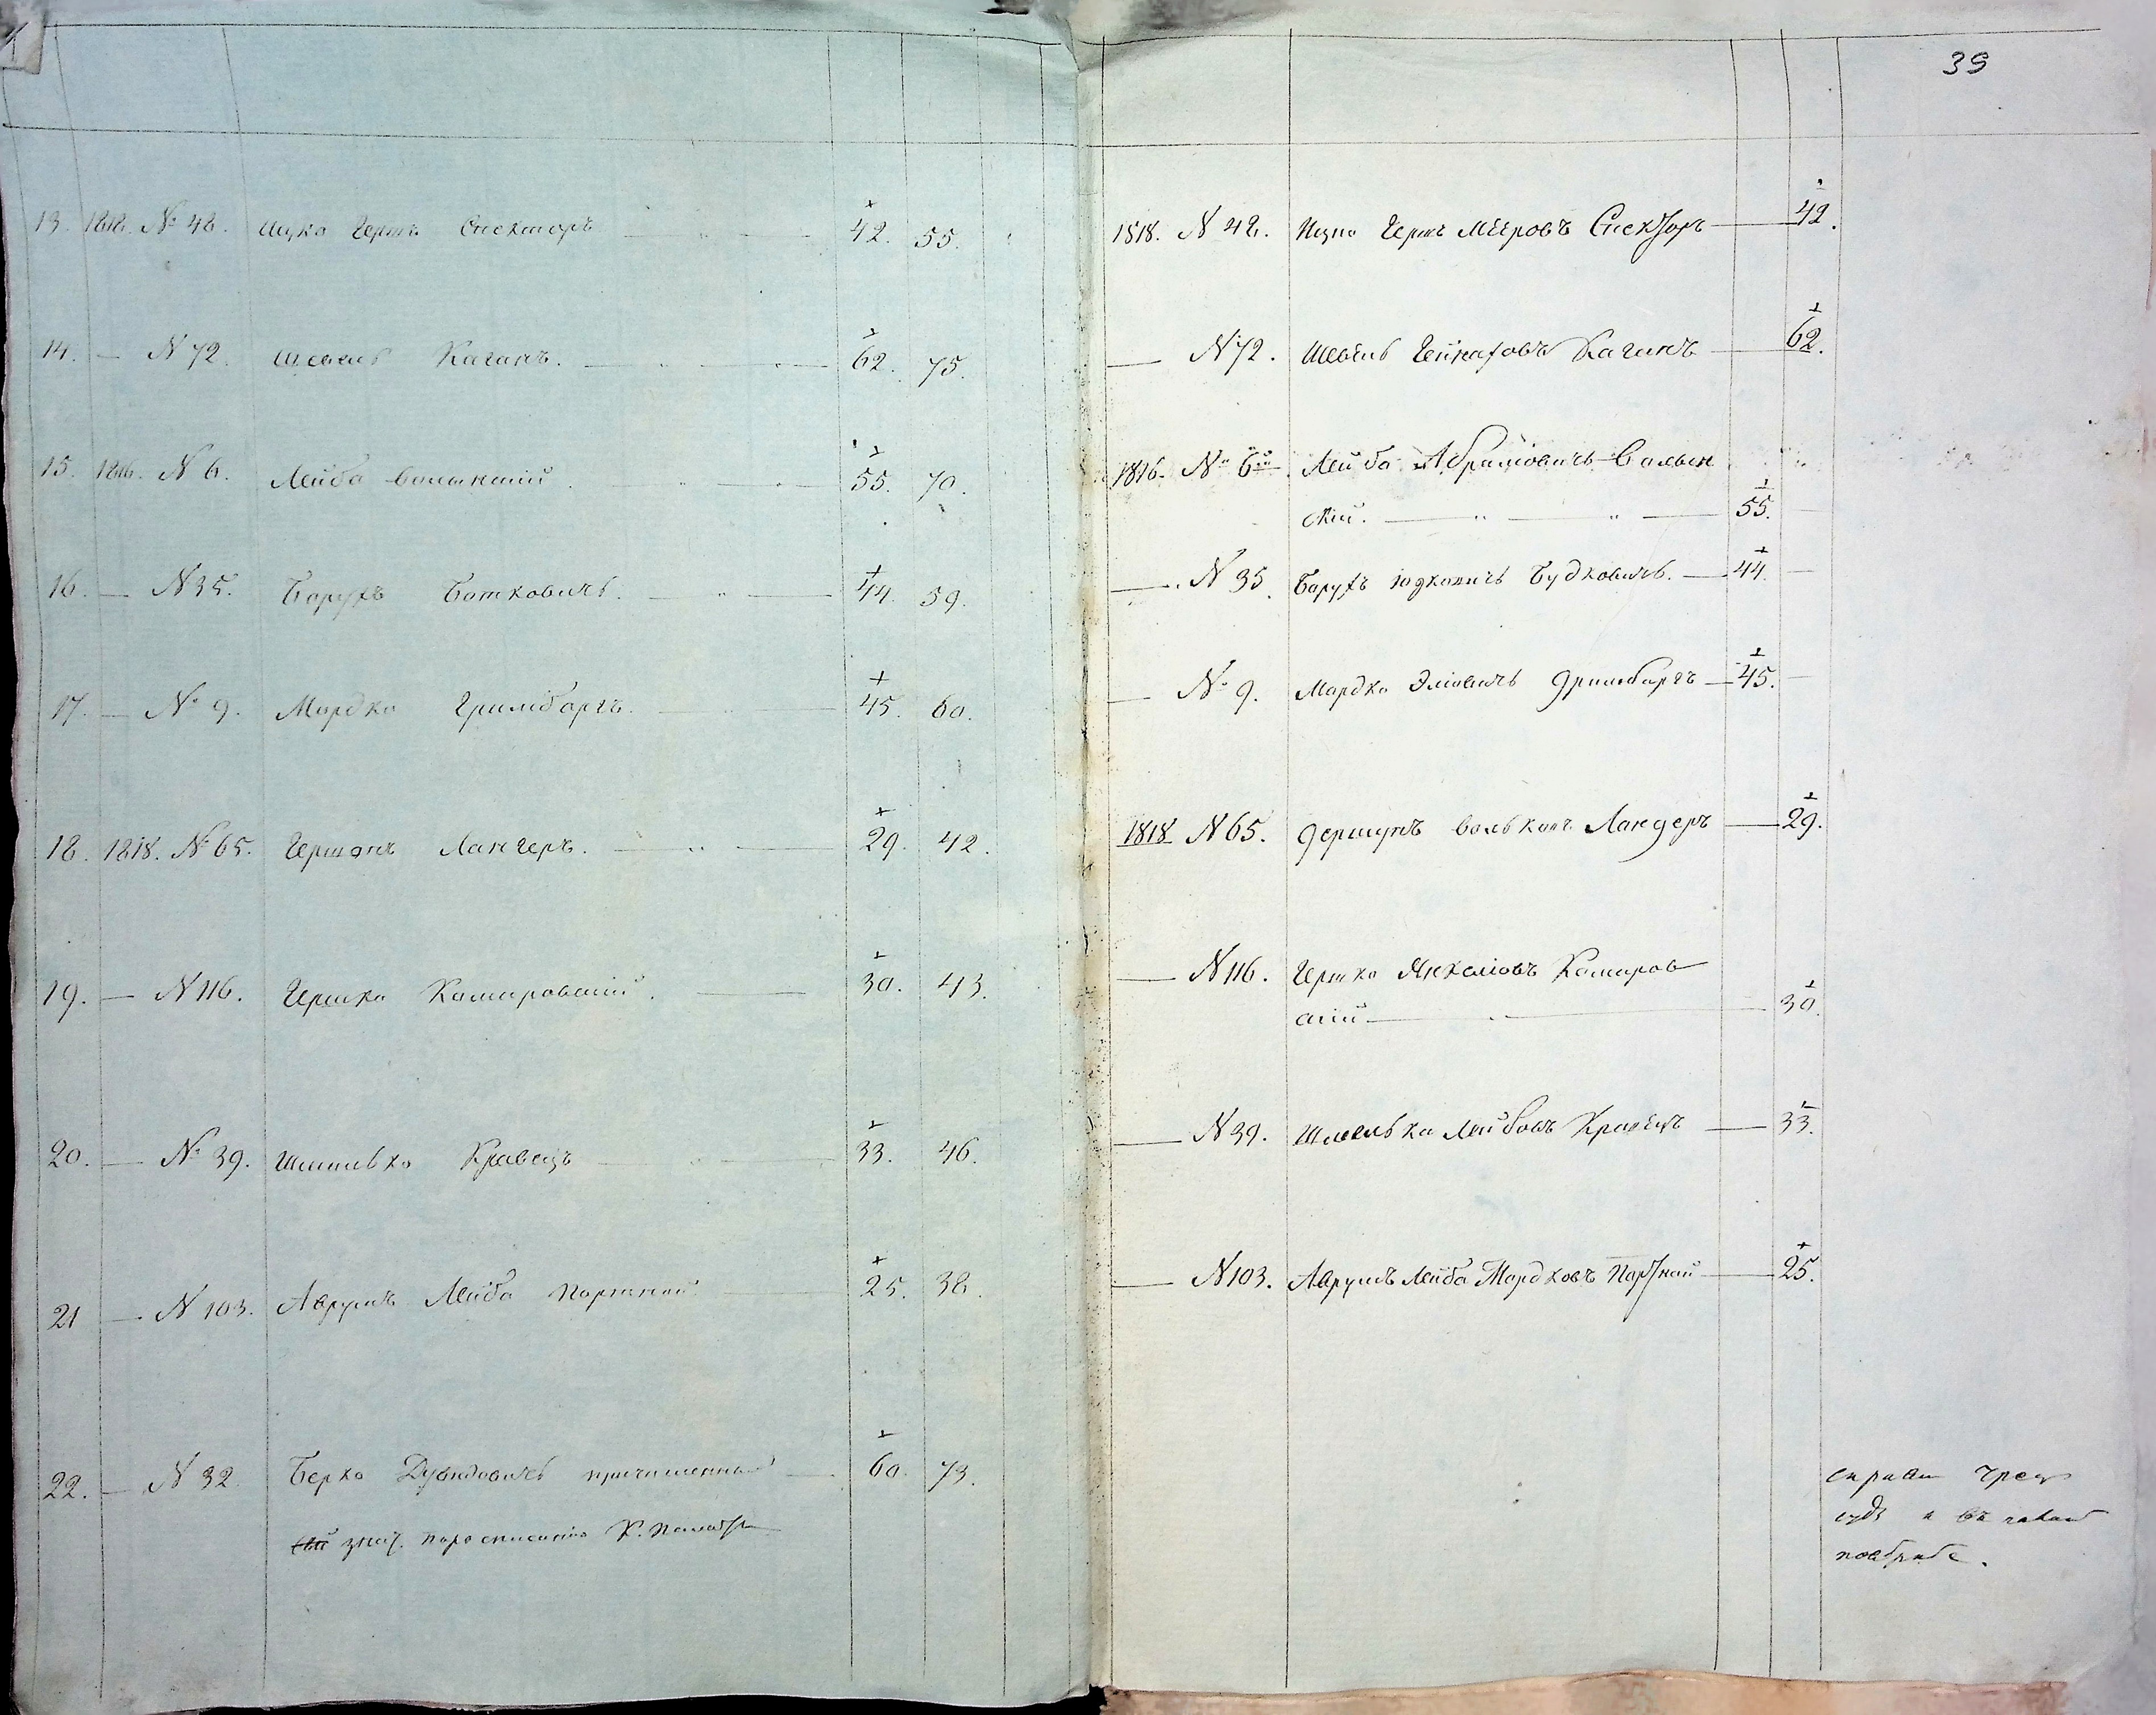 39
13. 1818. № 48. Ицко Гершъ Спекторъ 42. 55.
14. — N 72. Шевель Каганъ. 62. 75.
15. 1816. N 6. Лейба Волынскій. 55. 70.
16. — N 35. Борухъ Ботковичъ. 44. 59.
17. — № 9. Мордко Гримбаргъ. 45. 60.
18. 1818. № 65. Гершонъ Лангеръ. 29. 42.
19. — N 116. Гершко Комаровскій. 30. 43.
20. — № 39. Шмилько Кравецъ 33. 46.
21 — N 103. Аврумъ Лейба Портной 25. 38.
22. — N 32 Берко Дувидовичъ причисленный 60. 73.
1818. N 48. Ицко Гершъ Мееровъ Спекторъ 42.
— N 72. Шевель Каганъ 62.
1816. № 6й Лейба Абрамовичъ Волын
скій. 55.
— N 35. Борухъ Юдковичъ Будковичъ. 44.
— № 9. Мордко Эліовичъ Гримбаргъ 45.
1818 N 65. Гершунъ Вольковъ Лангеръ 29.
— N 116. Гершко Янкеліовъ Комаров
скій 30.
— N 39. Шмелька Лейбовъ Кравецъ 33.
— N 103. Аврумъ Лейба Мордковъ Портной 25.